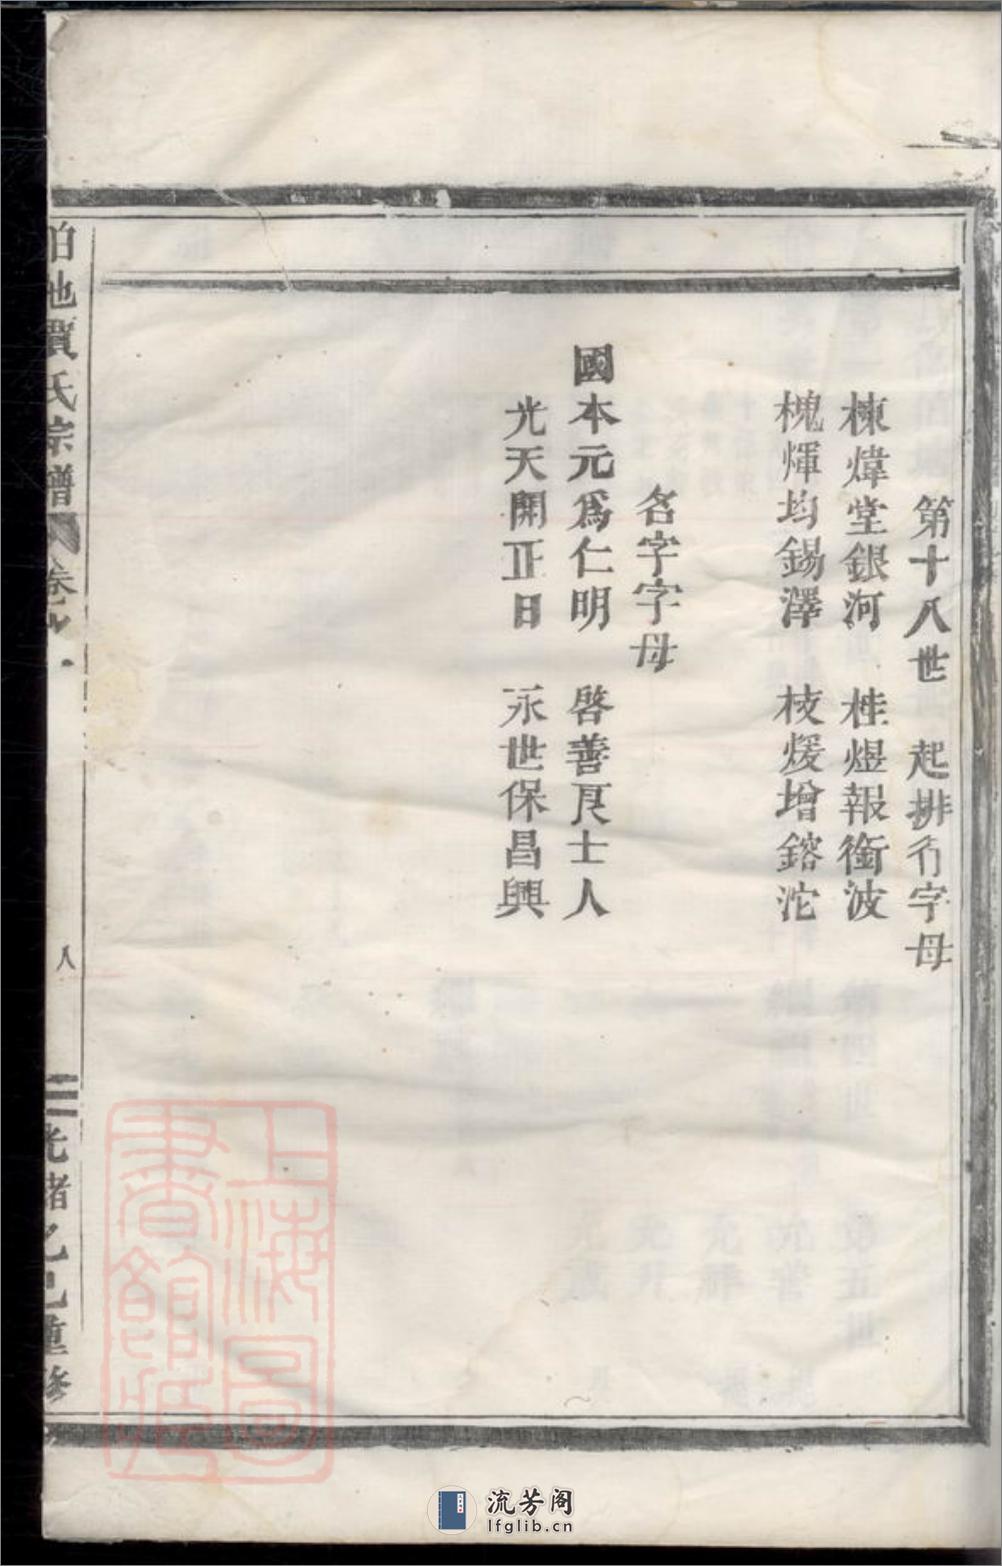 第十八世 起排行字母
棟煒堂銀河 桂煜報銜波
槐煇均錫澤 枝煖增鎔沱
名字字母
國本元爲仁明 啓善良士人
光天開正日 永世保昌興
柏池賈氏宗譜 卷
八
光緒乙巳重修
上海圖書館藏
流芳阁
lfglib.cn